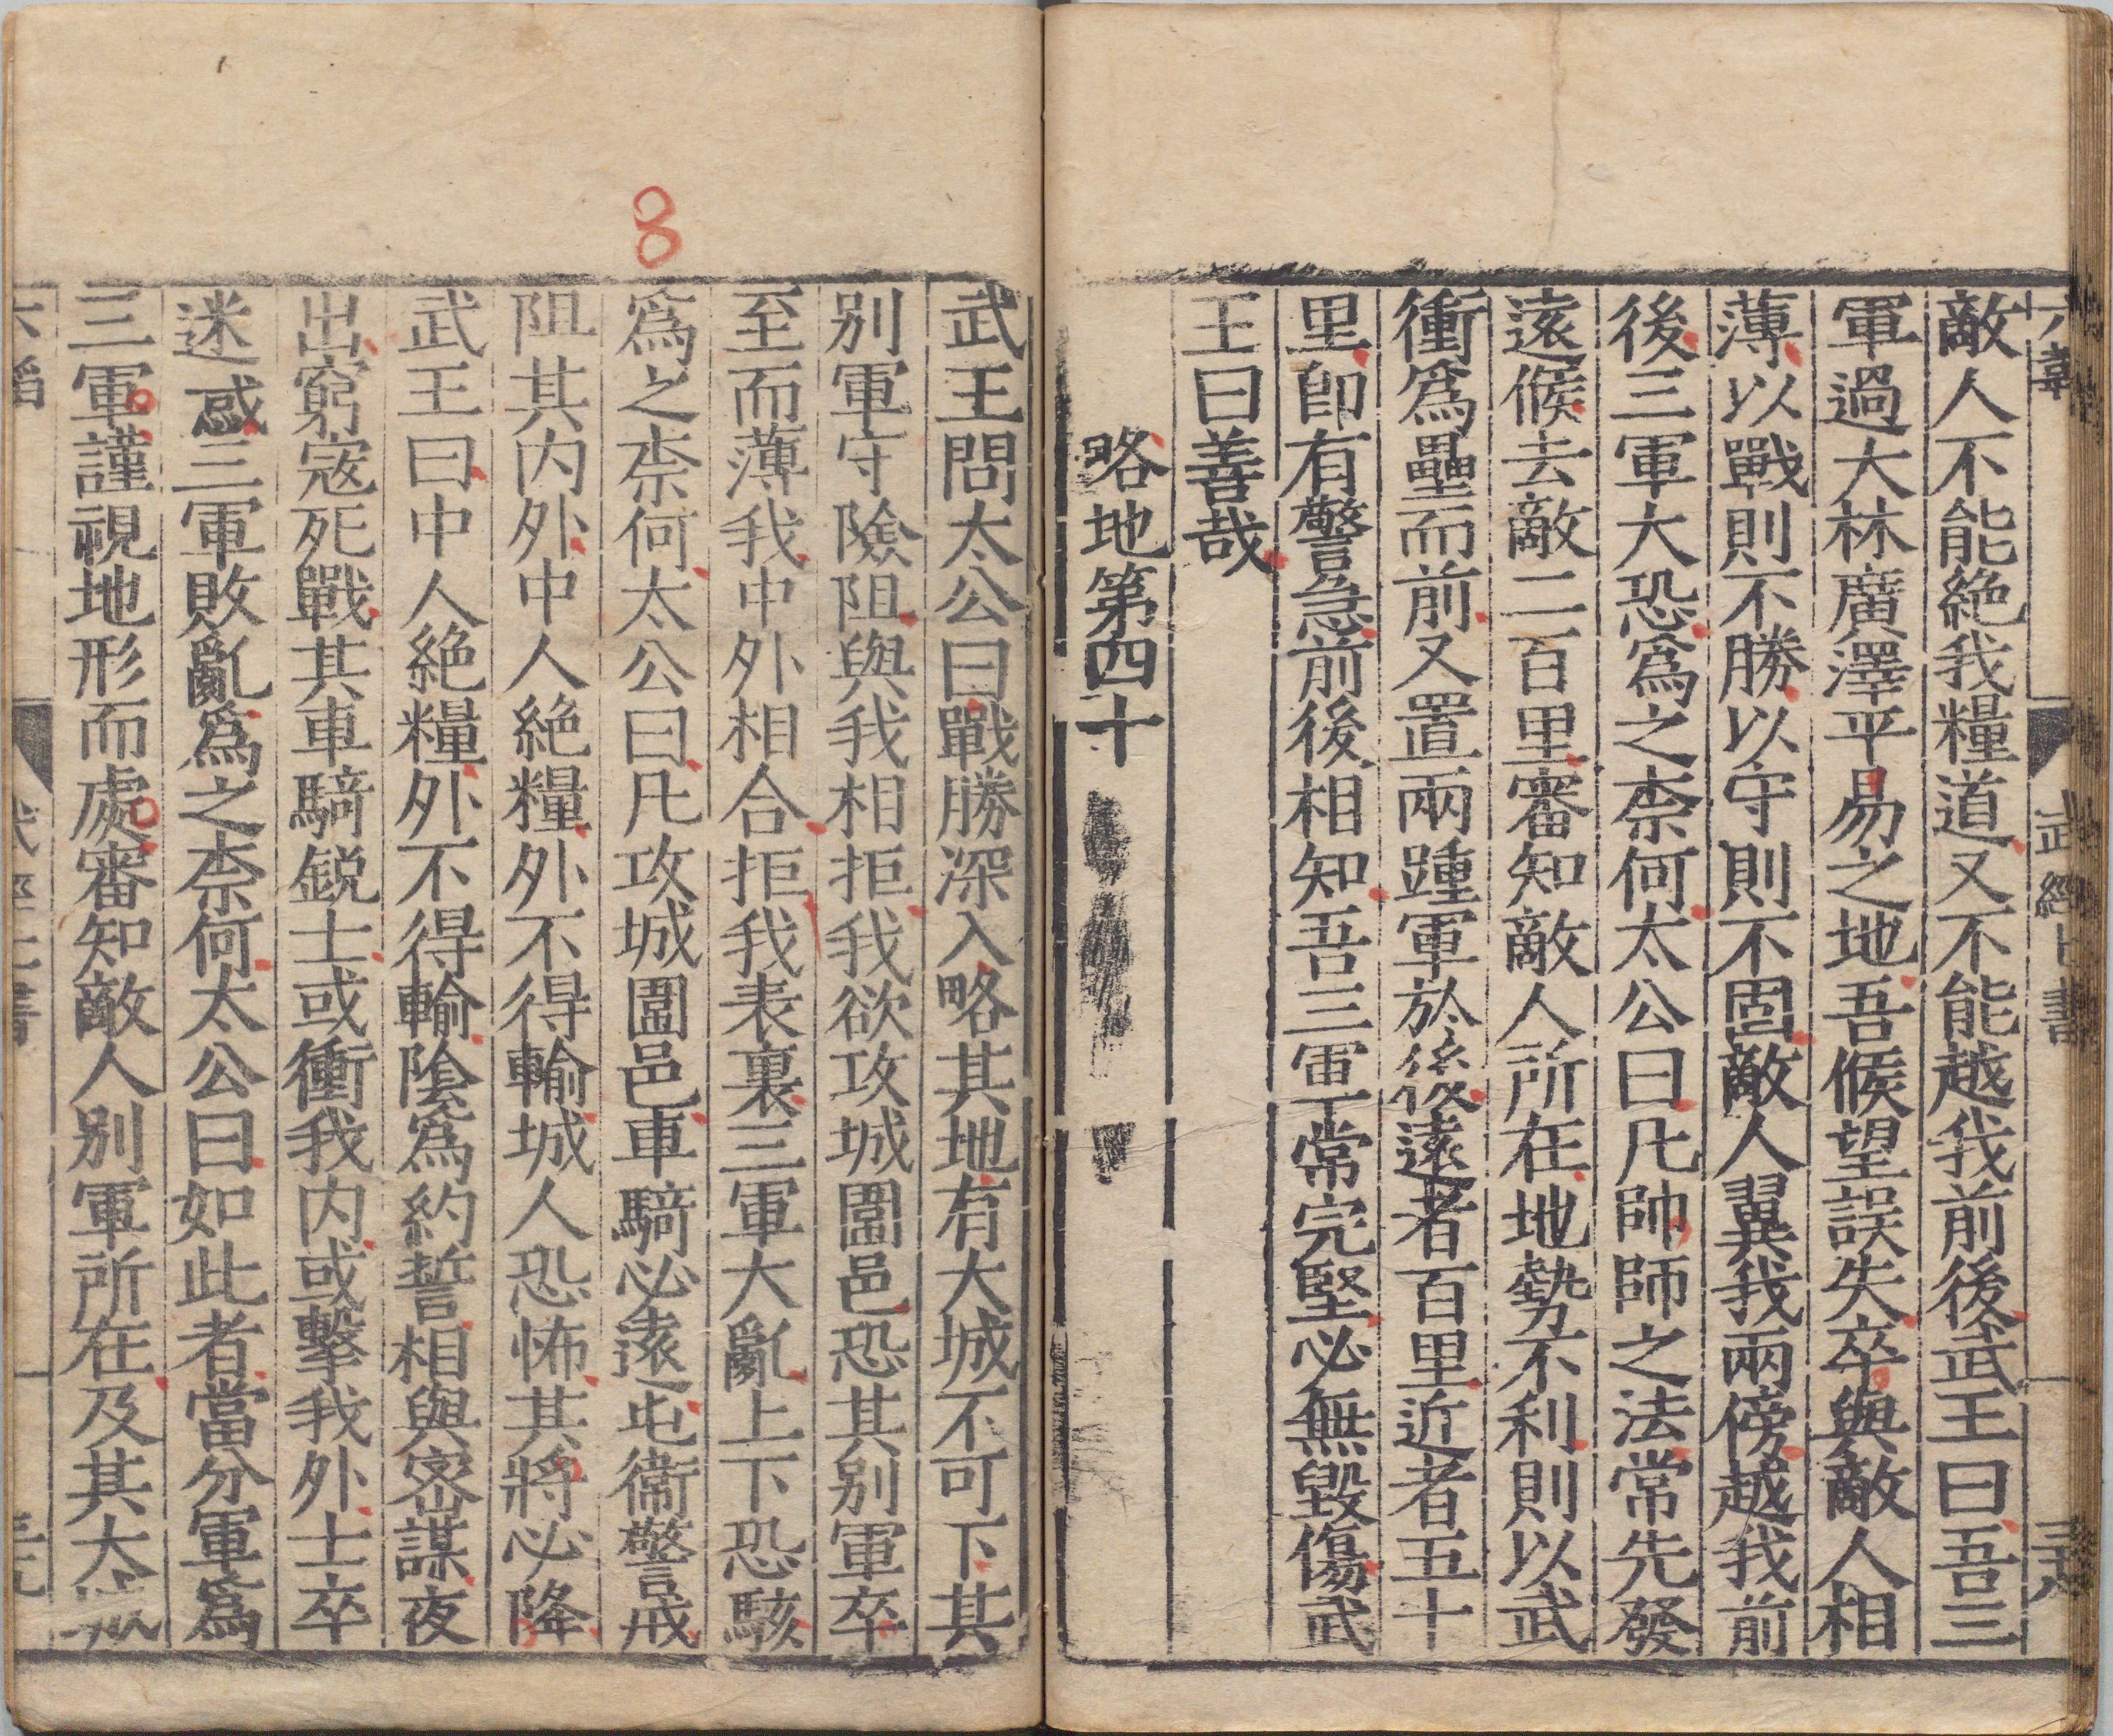 敵人不能絶我糧道又不能越我前後武王曰吾三
軍過大林廣澤平易之地吾候望誤失卒與敵人相
薄以戰則不勝以守則不固敵人翼我兩傍越我前
後三軍大恐爲之柰何太公曰凡帥師之法常先發
遠候去敵二百里審知敵人所在地勢不利則以武
衝爲壘而前又置兩踵軍於後遠者百里近者五十
里即有警急前後相知吾三軍常完堅必無毀傷武
王曰善哉
略地第四十
武王問太公曰戰勝深入略其地有大城不可下其
别軍守險阻與我相拒我欲攻城圍邑恐其别軍卒
至而薄我中外相合拒我表裏三軍大亂上下恐駭
爲之柰何太公曰凡攻城圍邑車騎必遠屯衛警戒
阻其内外中人絶糧外不得輸城人恐怖其將必降
武王曰中人絶糧外不得輸隂爲約誓相與密謀夜
出窮寇死戰其車騎鋭士或衝我内或擊我外士卒
迷惑三軍敗亂爲之柰何太公曰如此者當分軍爲
三軍謹視地形而處審知敵人别軍所在及其大城
8